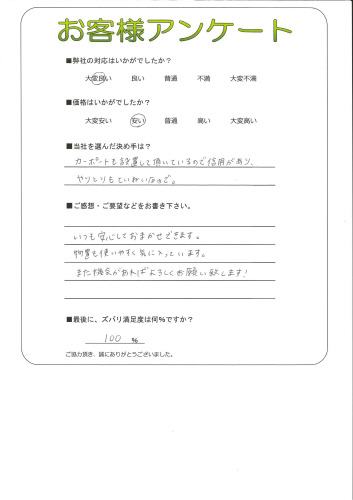 お客様アンケート
■弊社の対応はいかがでしたか？
大変良い 良い 普通 不満 大変不満
■価格はいかがでしたか？
大変安い 安い 普通 高い 大変高い
■当社を選んだ決め手は？
カーポートも設置して頂いているので信用があり、
やりとりもていねいなので。
■ご感想・ご要望などをお書き下さい。
いつも安心しておまかせできます。
物置も使いやすく気に入っています。
また機会があればよろしくお願い致します!
■最後に、ズバリ満足度は何%ですか？
100 %
ご協力頂き、誠にありがとうございました。